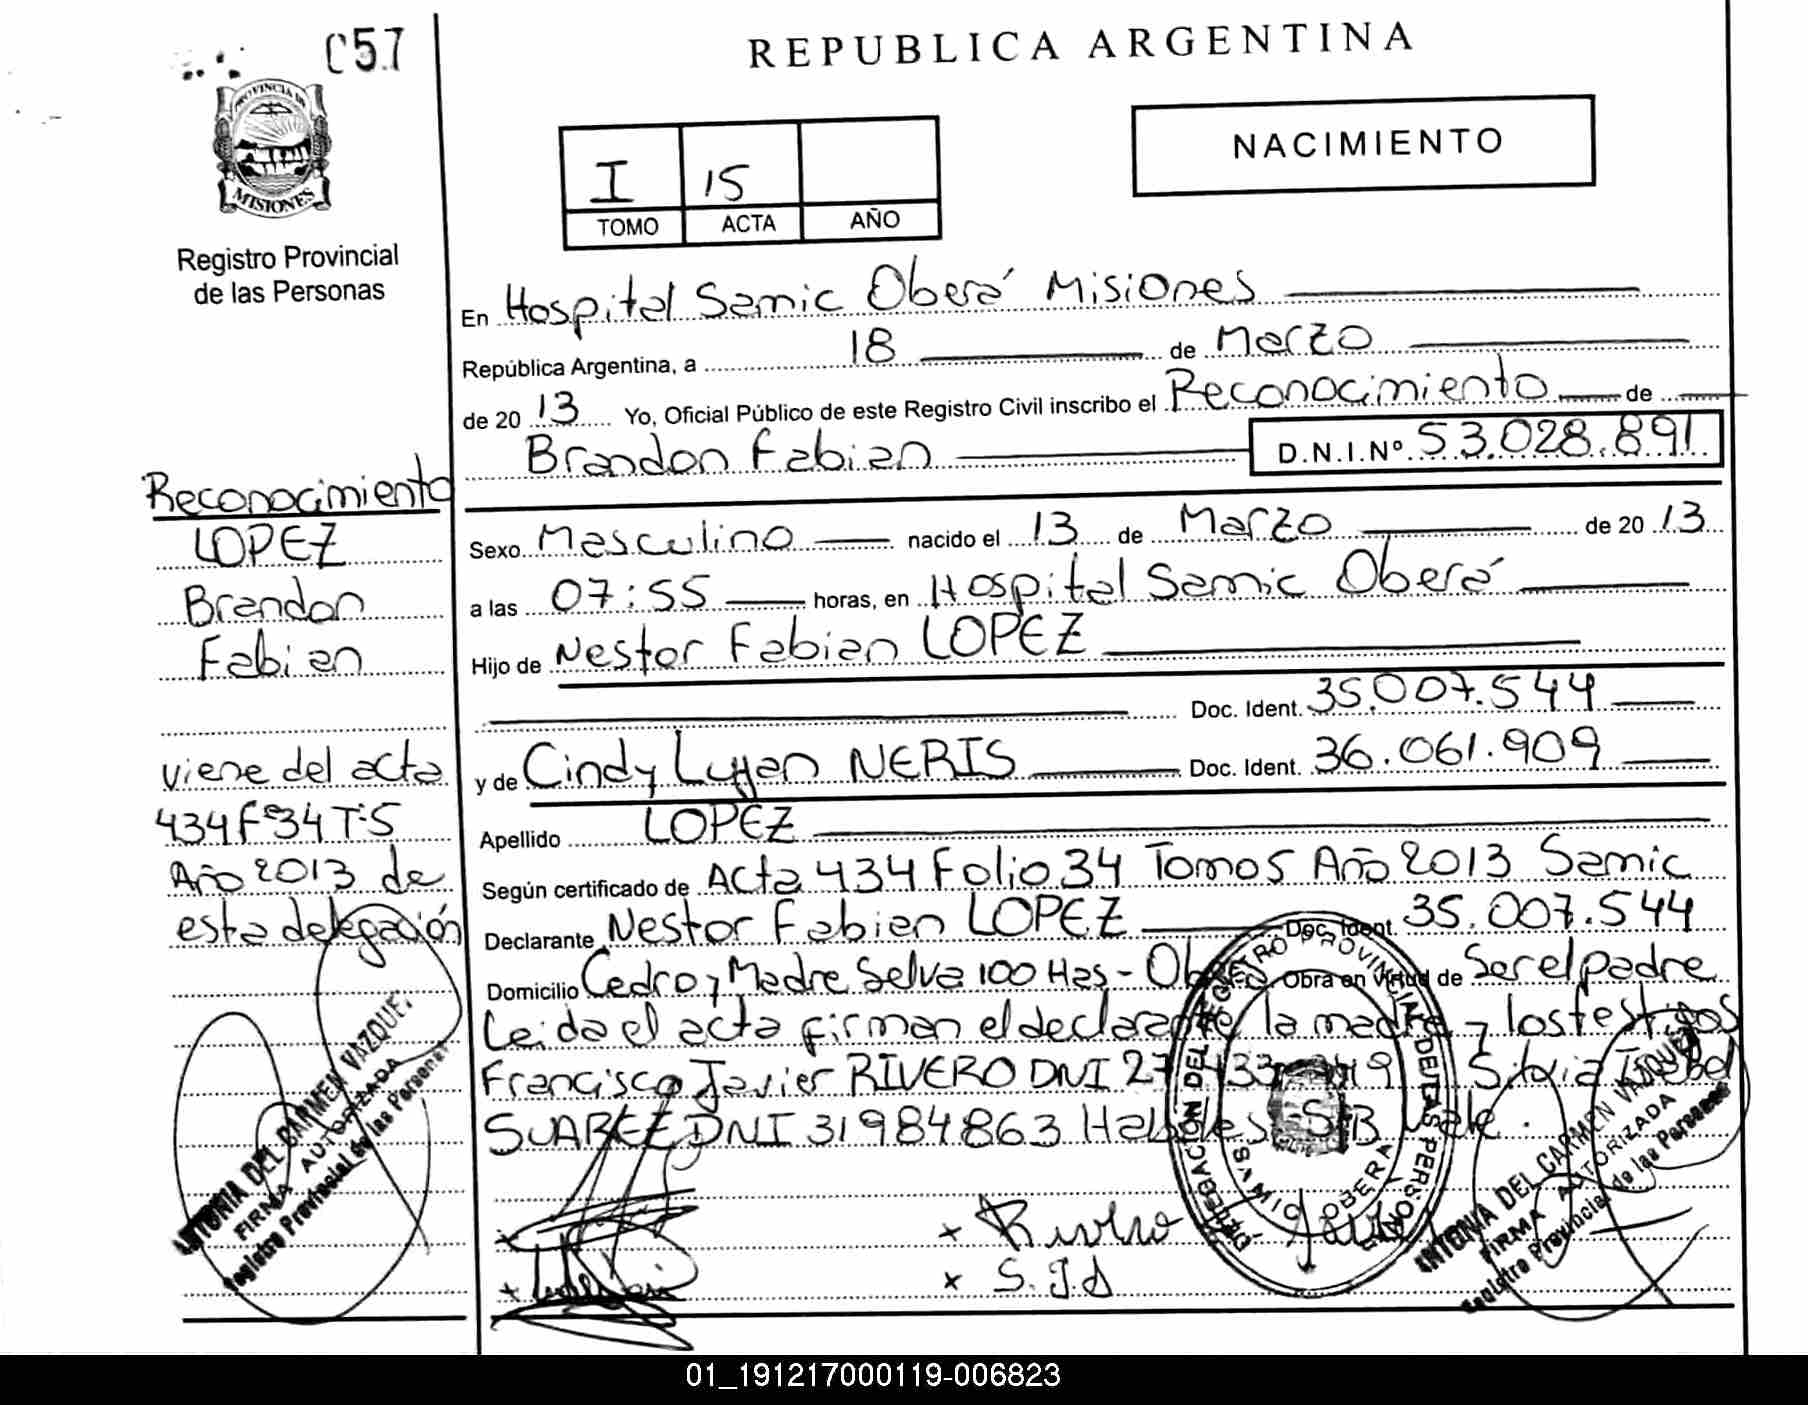 C57
REPUBLICA ARGENTINA
PROVINCIA DE
MISIONES
Registro Provincial
de las Personas
I 15
TOMO ACTA AÑO
NACIMIENTO
En Hospital Samic Oberá Misiones
República Argentina, a 18 de Marzo
de 2013 Yo, Oficial Público de este Registro Civil inscribo el Reconocimiento de
Brandon Fabian D.N.I.Nº 53.028.891
Sexo Masculino nacido el 13 de Marzo de 2013
a las 07:55 horas, en Hospital Samic Oberá
Hijo de Nestor Fabian LOPEZ
Doc. Ident. 35.007.544
y de Cindy Lujan NERIS Doc. Ident. 36.061.909
Apellido LOPEZ
Según certificado de Acta 434 Folio 34 Tomo 5 Año 2013 Samic
Declarante Nestor Fabian LOPEZ Doc. Ident. 35.007.544
Domicilio Cedro y Madre Selva 100 Has - Obra en Virtud de Ser el padre
Leida el acta firman el declarante la madre y los testigos
Francisco Javier RIVERO DNI Silvia Isabel
SUAREZ DNI 31984863 Habiles S/B Vale.
Reconocimiento
LOPEZ
Brandon
Fabian
viene del acta
434 Fº34 T:5
Año 2013 de
esta delegación
ANTONIA DEL CARMEN VAZQUEZ
FIRMA AUTORIZADA
Registro Provincial de las Personas
DELEGACION DEL REGISTRO PROVINCIAL DE LAS PERSONAS
OBERA
x Rivero
x S.I.S
ANTONIA DEL CARMEN VAZQUEZ
FIRMA AUTORIZADA
Registro Provincial de las Personas
01_191217000119-006823